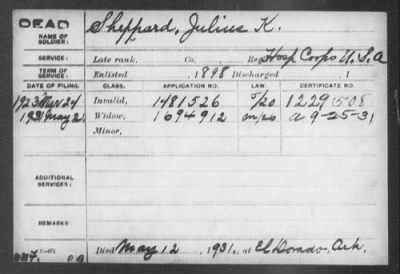 DEAD
NAME OF SOLDIER: Sheppard, Julius K.
SERVICE: Late rank, Co. Reg. Hosp Corps U.S.A
TERM OF SERVICE: Enlisted 1898 Discharged , 1
DATE OF FILING. CLASS. APPLICATION NO. LAW CERTIFICATE NO.
1923 Mar 24 Invalid, 1481526 5/20 1229508
1931 May 21 Widow, 1694912 m/20 a 9-25-31
Minor,
ADDITIONAL SERVICES:
REMARKS:
Died May 12, 1931, at El Dorado, Ark.